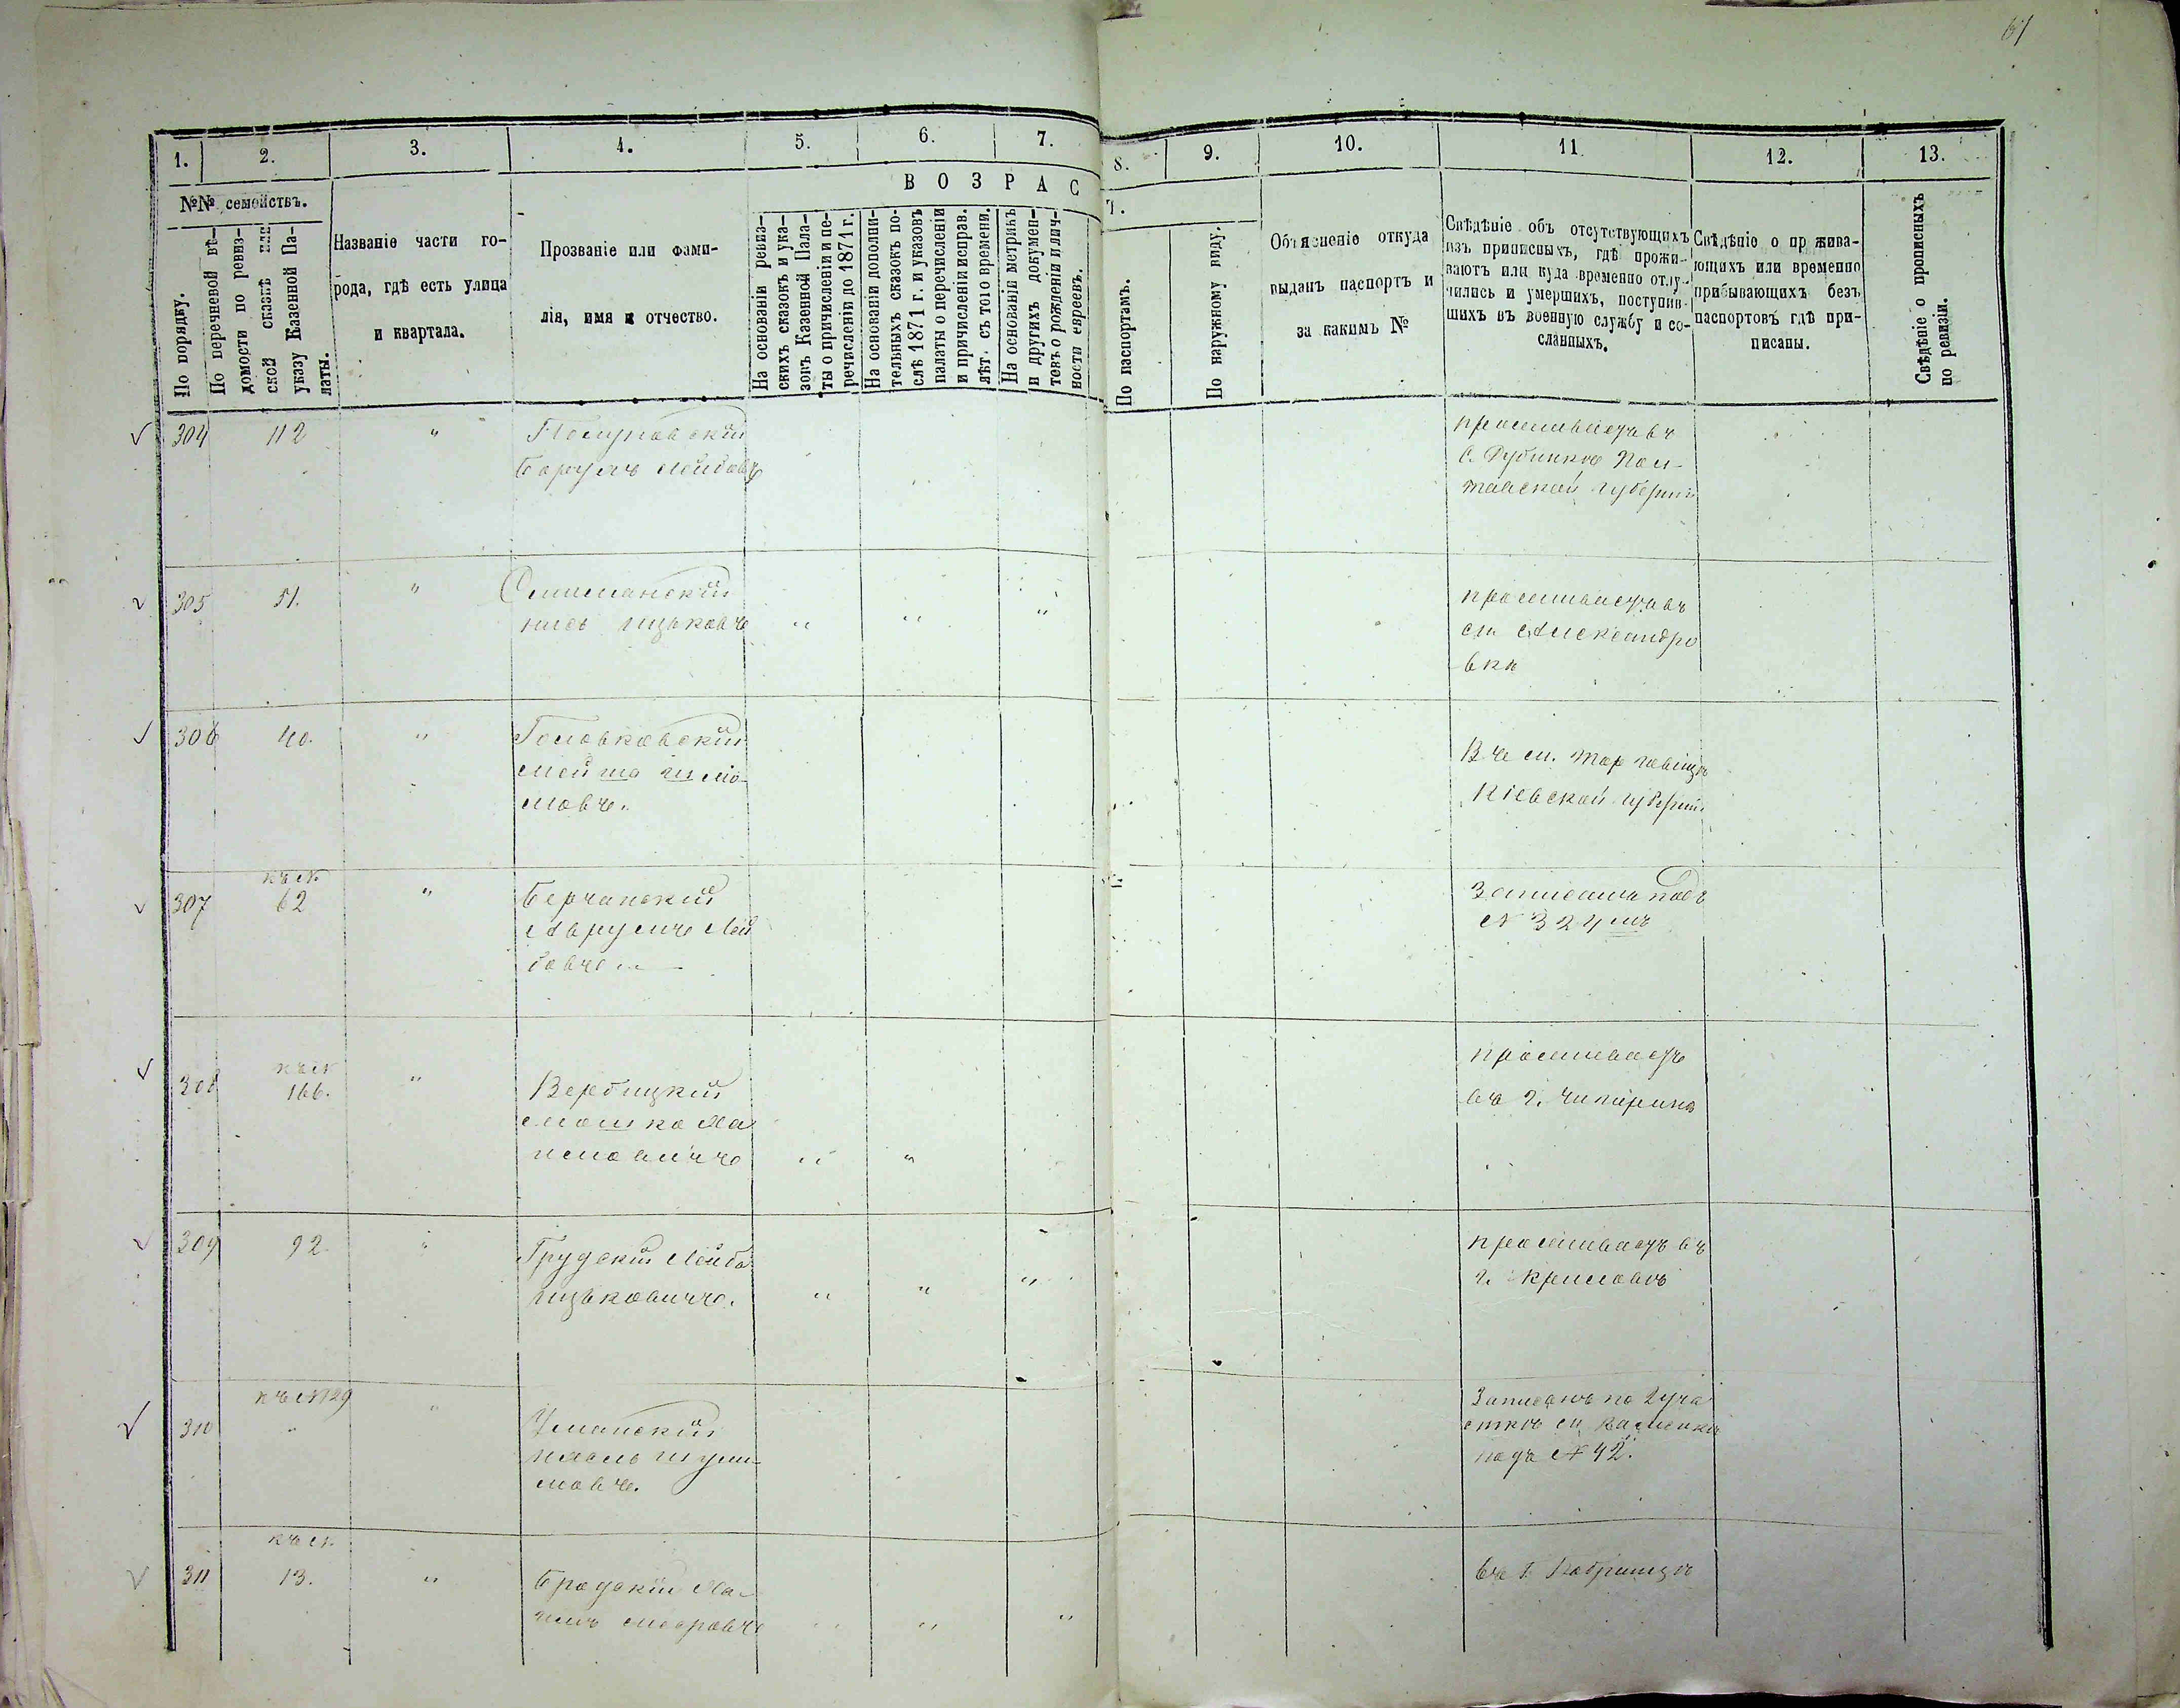 61
1.
2.
3.
4.
5.
6.
7.
8.
9.
10.
11
12.
13.
№№ семействъ.
По порядку.
По перечневой вѣ-
домости по ревиз-
ской сказкѣ или
указу Казенной Па-
латы.
Названіе части го-
рода, гдѣ есть улица
и квартала.
Прозваніе или фами-
лія, имя и отчество.
В О З Р А С
Т.
На основаніи ревиз-
скихъ сказокъ и ука-
зовъ Казенной Пала-
ты о причисленіи и пе-
речисленіи до 1871 г.
На основаніи дополни-
тельныхъ сказокъ по-
слѣ 1871 г. и указовъ
палаты о перечисленіи
и причисленіи исправ.
лѣт. съ того времени.
На основаніи метрикъ
и другихъ докумен-
товъ о рожденіи и лич-
ности евреевъ.
По паспортамъ.
По наружному виду.
Объясненіе откуда
выданъ паспортъ и
за какимъ №
Свѣдѣніе объ отсутствующихъ
изъ приписныхъ, гдѣ прожи-
ваютъ или куда временно отлу-
чились и умершихъ, поступив-
шихъ въ военную службу и со-
сланныхъ.
Свѣдѣніе о прожива-
ющихъ или временно
прибывающихъ безъ
паспортовъ гдѣ при-
писаны.
Свѣдѣніе о прописныхъ
по ревизіи.
304 112 "
Барухъ Лейбовъ
проживаетъ въ
с. Пол-
тавской губерніи
305 51. "
Ицьковъ " " "
проживаетъ въ
м. Александро
вкѣ
306 40. "
Головковскій
Мошко
Въ м.
Кіевской губерніи.
307 къ № 62 "
Берчанскій
Аврумъ Лей
бовъ
Записанъ подъ
№ 324 мъ
308 къ № 166. "
Вербицкій
Мошко Ха
" "
проживаетъ
въ г. Чигиринѣ
309 92 "
Грудскій Лейба
Ицьковичъ. " " "
проживаетъ въ
г. Крыловѣ
310 къ № 29 "
Уманскій
Записанъ по 2 уча
сткѣ м. Каменки
подъ № 42.
311 къ № 13. "
Бродскій Ха-
имъ " " "
Въ г. Бобринцѣ